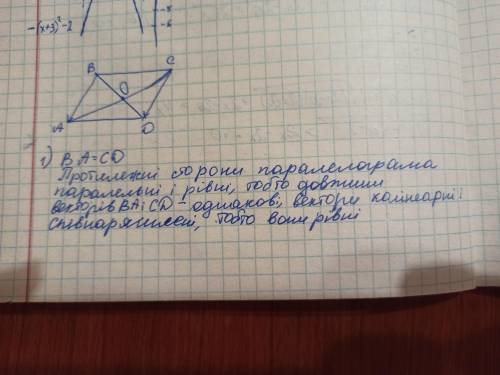 -(x+3)²-2
-5
-6
B C
O
A D
г) BA=CD
Протилежні сторони паралелограма
паралельні і рівні, тобто довжини
векторів BA і CD - однакові, вектори колінеарні і
співнапямлені, тобто вони рівні